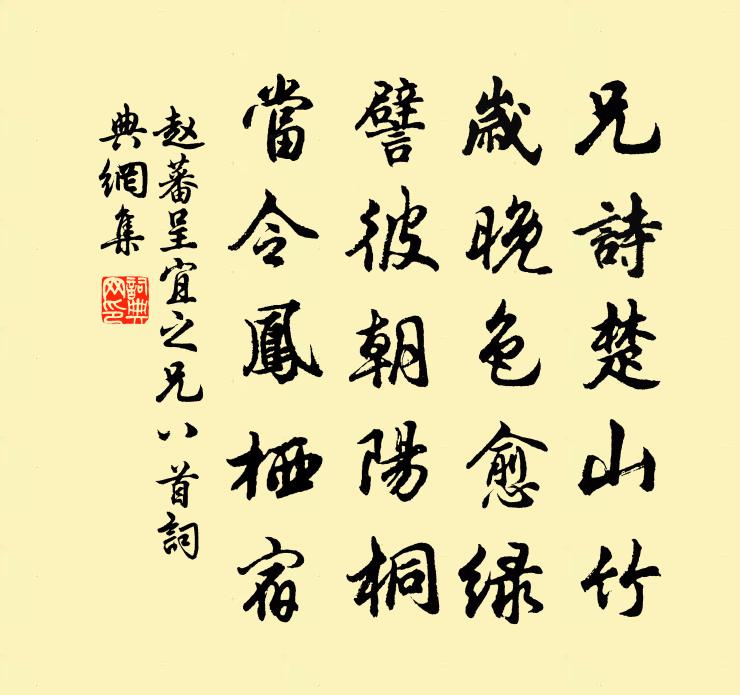 兄詩楚山竹
歲晚色愈緑
譬彼朝陽桐
當令鳳栖宿
赵蕃呈宜之兄八首詞
典網集
詞典网印